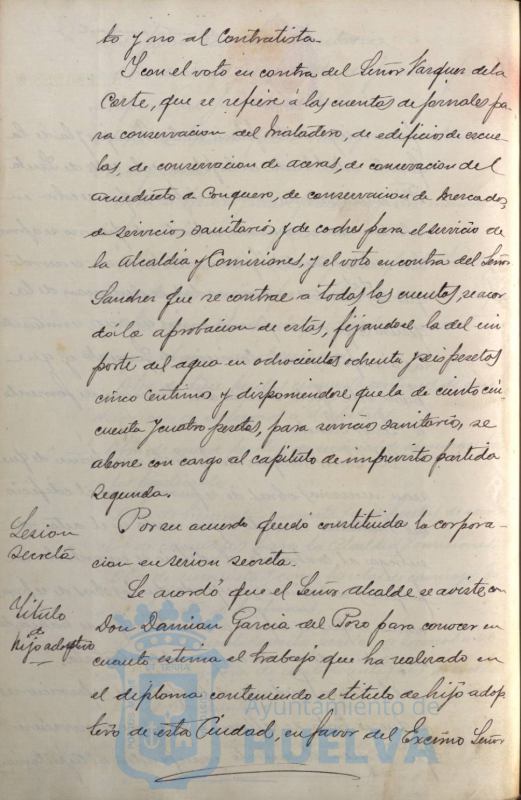 to y no al Contratista.
Y con el voto en contra del Señor Vazquez de la
Corte, que se refiere á las cuentas de jornales pa
ra conservacion del Matadero, de edificios de escue
las, de conservacion de aceras, de conservacion del
acueducto de Conquero, de conservacion de Mercados,
de servicios sanitarios y de coches para el servicio de
la Alcaldia y Comisiones, y el voto en contra del Señor
Sanchez que se contrae a todas las cuentas, se acor
dó la aprobacion de estas, fijandose la del im
porte del agua en ochocientas ochenta y seis pesetas
cinco centimos y disponiendose que la de ciento cin
cuenta y cuatro pesetas, para servicios sanitarios, se
abone con cargo al capitulo de imprevistos partida
segunda.
Sesion
secreta
Por su acuerdo quedó constituida la corpora-
cion en sesion secreta.
Titulo
de
hijo adoptivo
Se acordó que el Señor alcalde se aviste con
Don Damian Garcia del Pozo para conocer en
cuanto estima el trabajo que ha realizado en
el diploma conteniendo el titulo de hijo adop
tivo de esta Ciudad, en favor del Excmo Señor
Ayuntamiento de
HUELVA